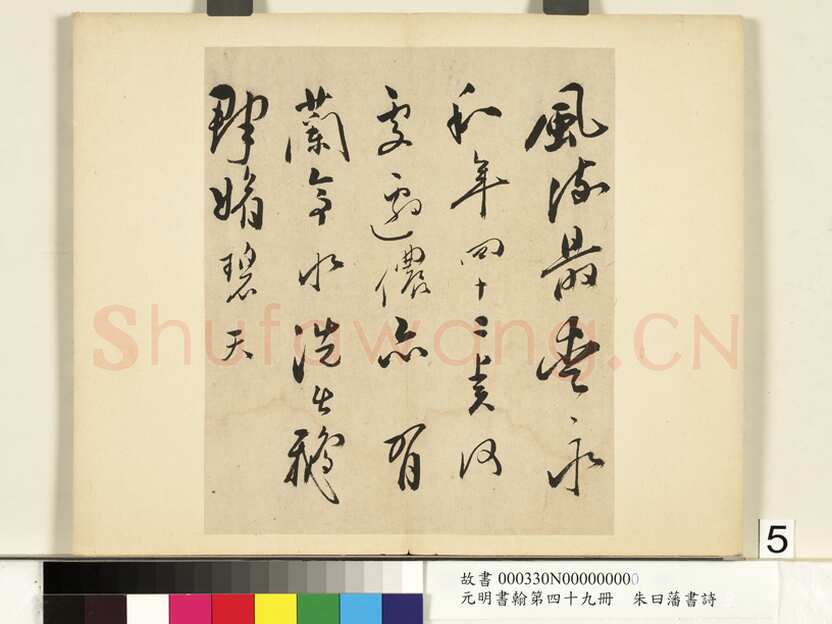 風流最愛永
和年四十二賢何
處邊儂亦有
蘭亭水洗出鵝
群媚碧天
Shufawang.CN
5
故書 000330N000000000
元明書翰第四十九冊 朱曰藩書詩